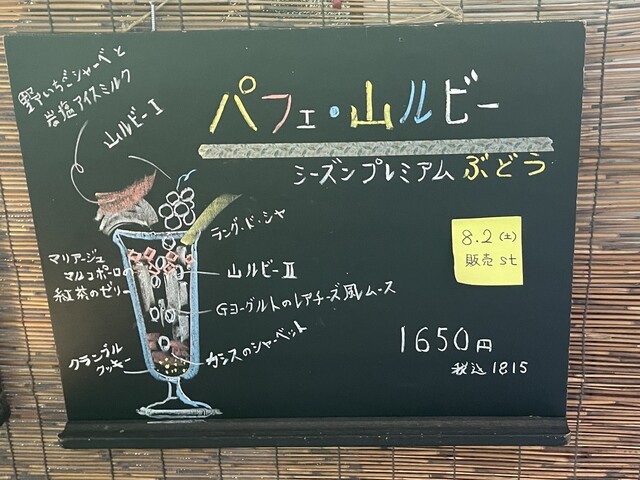 野いちごシャーベと
岩塩アイスミルク
山ルビーI
パフェ・山ルビー
シーズンプレミアム ぶどう
ラング・ド・シャ
8.2(土)
販売 st
マリアージュ
マルコポーロの
紅茶のゼリー
山ルビーII
Gヨーグルトのレアチーズ風ムース
クランブル
クッキー
カシスのシャーベット
1650円
税込 1815